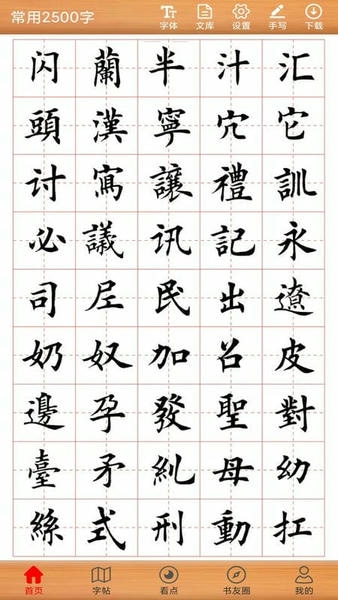 常用2500字 字体 文库 设置 手写 下载
闪 蘭 半 汁 汇
頭 漢 寧 穴 它
讨 寫 讓 禮 訓
必 議 讯 記 永
司 尼 民 出 遼
奶 奴 加 召 皮
邊 孕 發 聖 對
臺 矛 糺 母 幼
絲 式 刑 動 扛
首页 字帖 看点 书友圈 我的